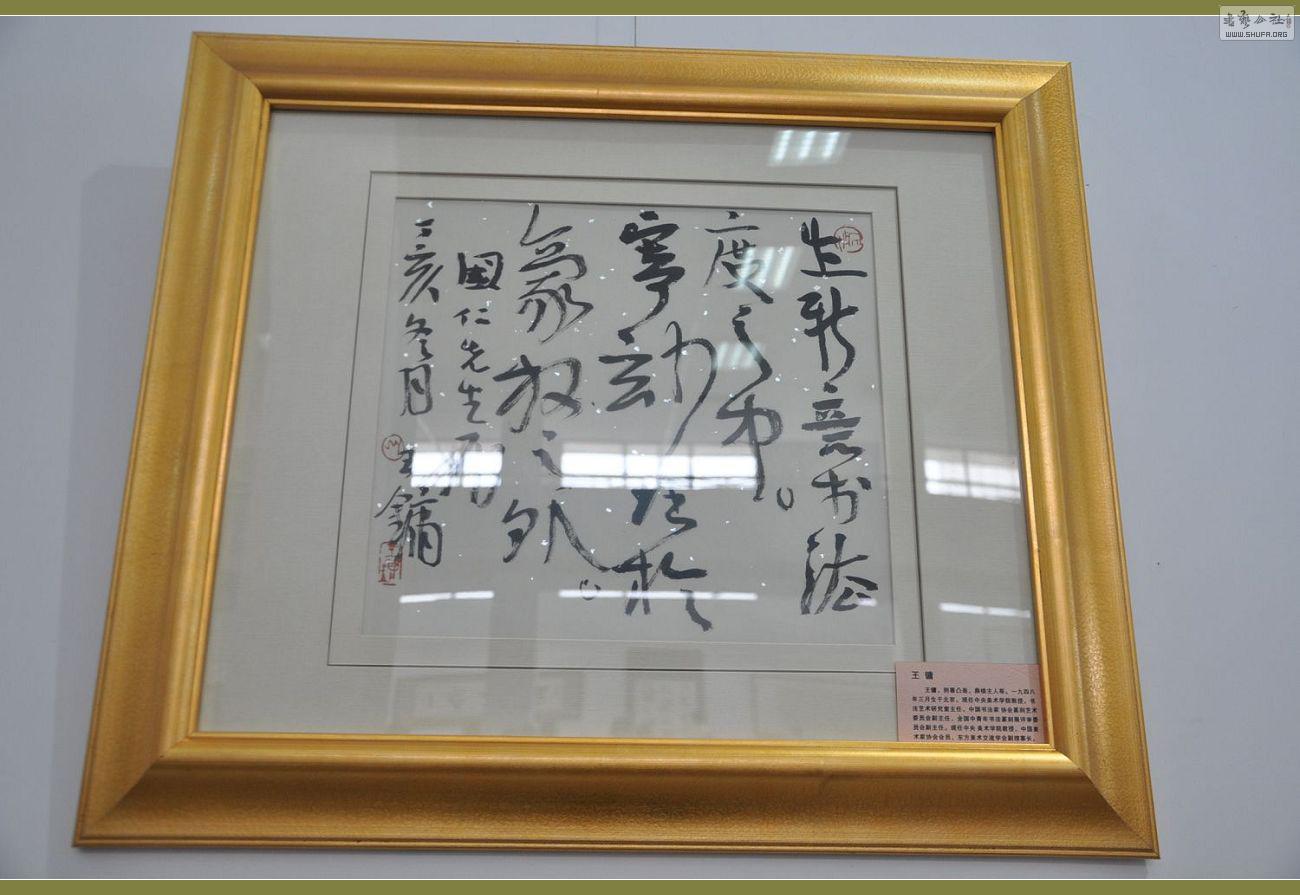 書藝公社
WWW.SHUFA.ORG
出新意于法
度之中。
寄妙理於
豪放之外。
國仁先生
丁亥冬月
王鏞
王 镛
王镛，别署凸斋、鼎楼主人等。一九四八
年三月生于北京。现任中央美术学院教授，书
法艺术研究室主任，中国书法家 协会篆刻艺术
委员会副主任，全国中青年书法篆刻展评审委
员会副主任。现任中央 美术学院教授，中国美
术家协会会员，东方美术交流学会副理事长。